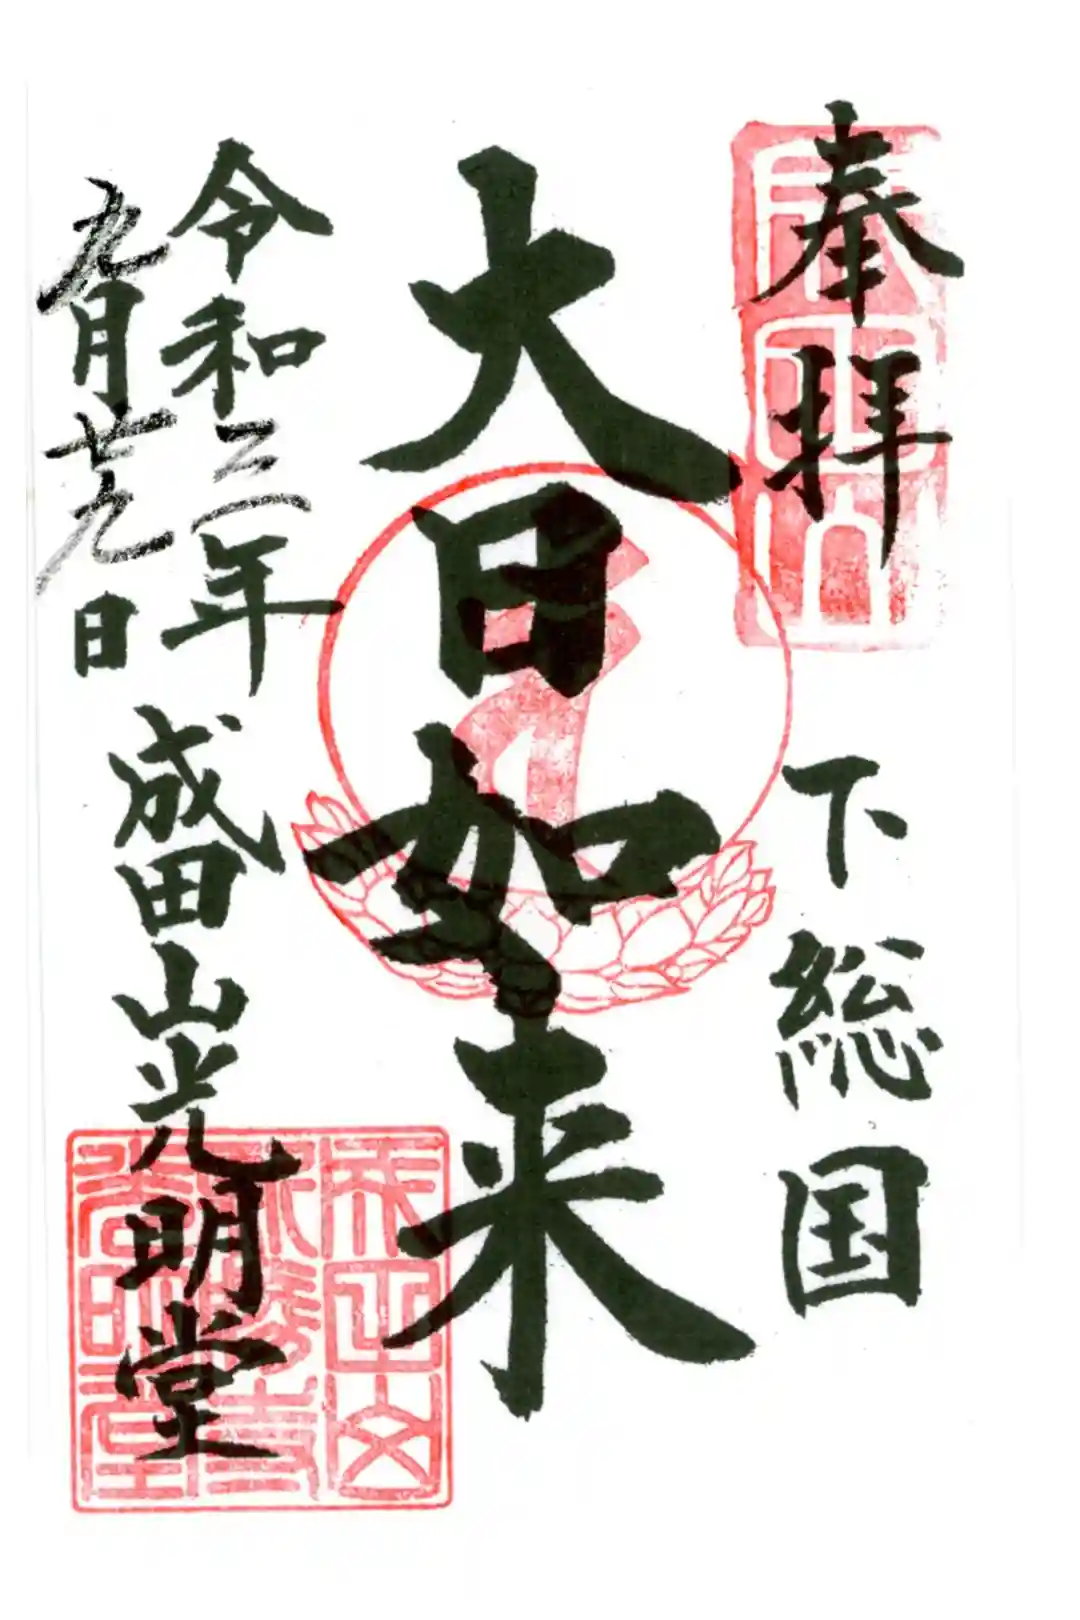 奉拝
下総国
大日如来
令和三年
九月廿九日
成田山光明堂